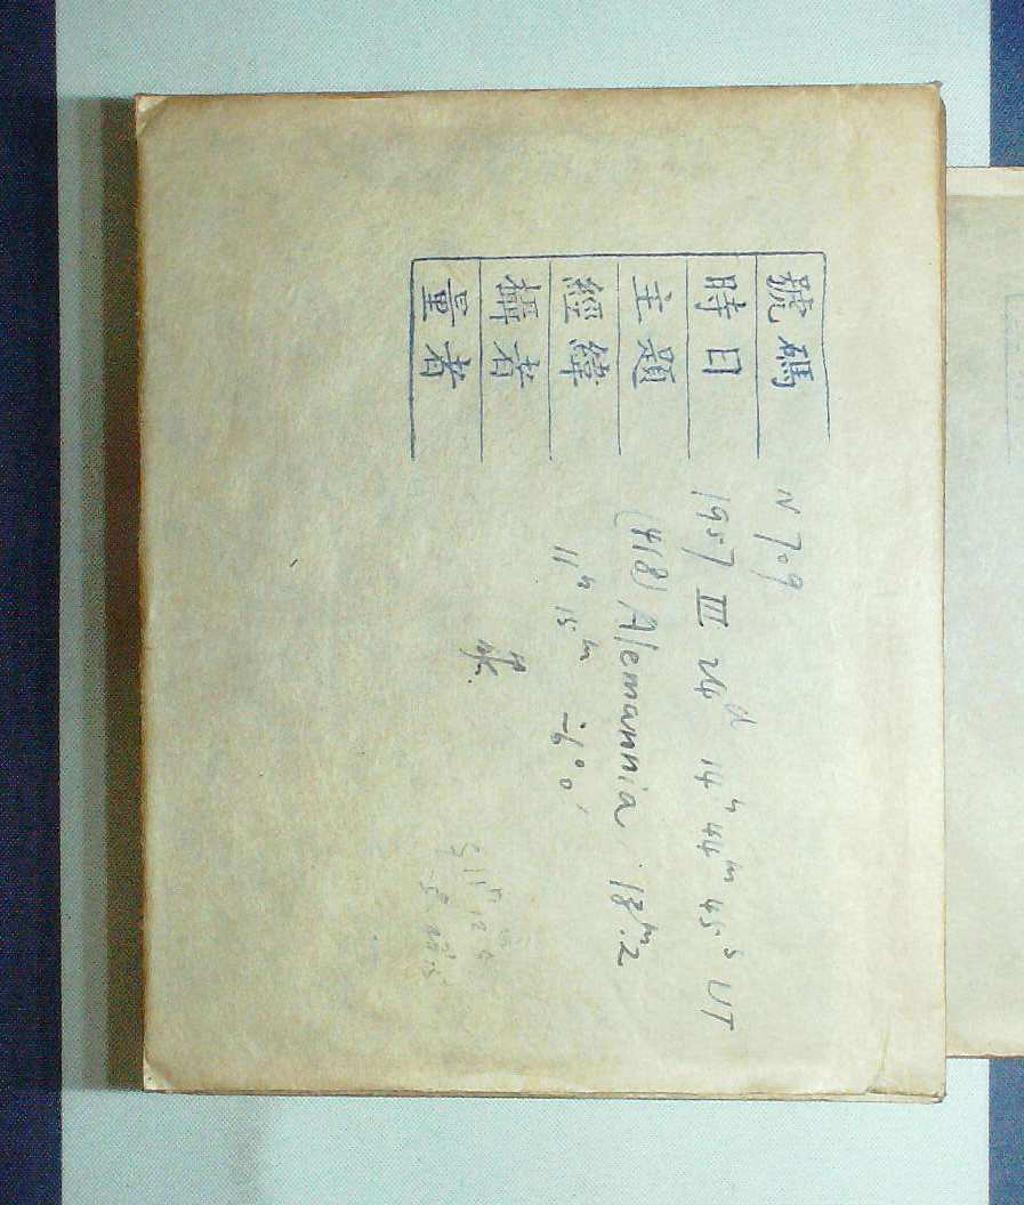 號碼 N 709
時日 1957 III 24ᵈ 14ʰ 44ᵐ 45ˢ UT
主題 (418) Alemannia 13ᵐ.2
經緯 11ʰ 15ᵐ -6° 0′
攝者
量者